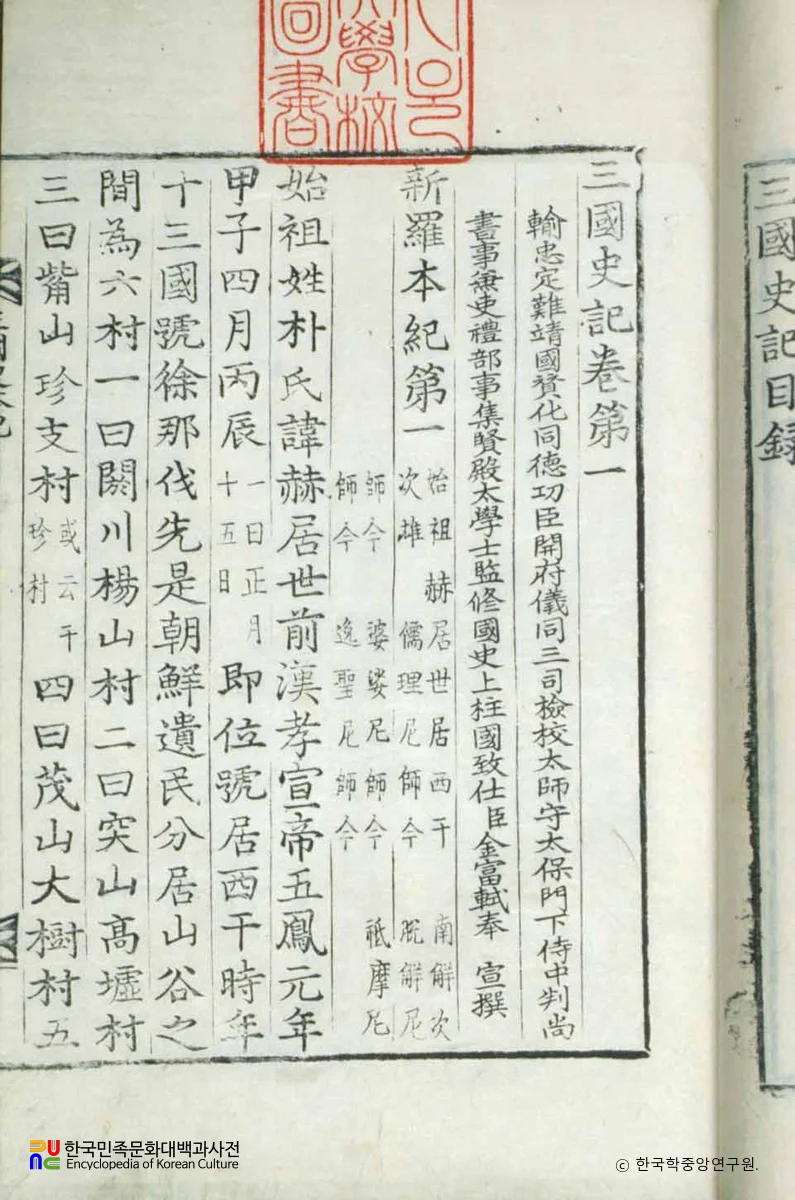 三國史記目録
三國史記卷第一
輸忠定難靖國賛化同德功臣開府儀同三司檢校太師守太保門下侍中判尚
書事兼吏禮部事集賢殿太學士監修國史上柱國致仕臣金富軾奉 宣撰
新羅本紀第一 始祖 赫居世居西干 南解次
次雄 儒理尼師今 脫解尼
師今 婆娑尼師今 祗摩尼
師今 逸聖尼師今
始祖姓朴氏諱赫居世前漢孝宣帝五鳳元年
甲子四月丙辰 一曰正月 十五日 即位號居西干時年
十三國號徐那伐先是朝鮮遺民分居山谷之
間為六村一曰閼川楊山村二曰突山髙墟村
三曰觜山珍支村 或云干 珍村 四曰茂山大樹村五
學校
圖書
한국민족문화대백과사전
Encyclopedia of Korean Culture
ⓒ 한국학중앙연구원.